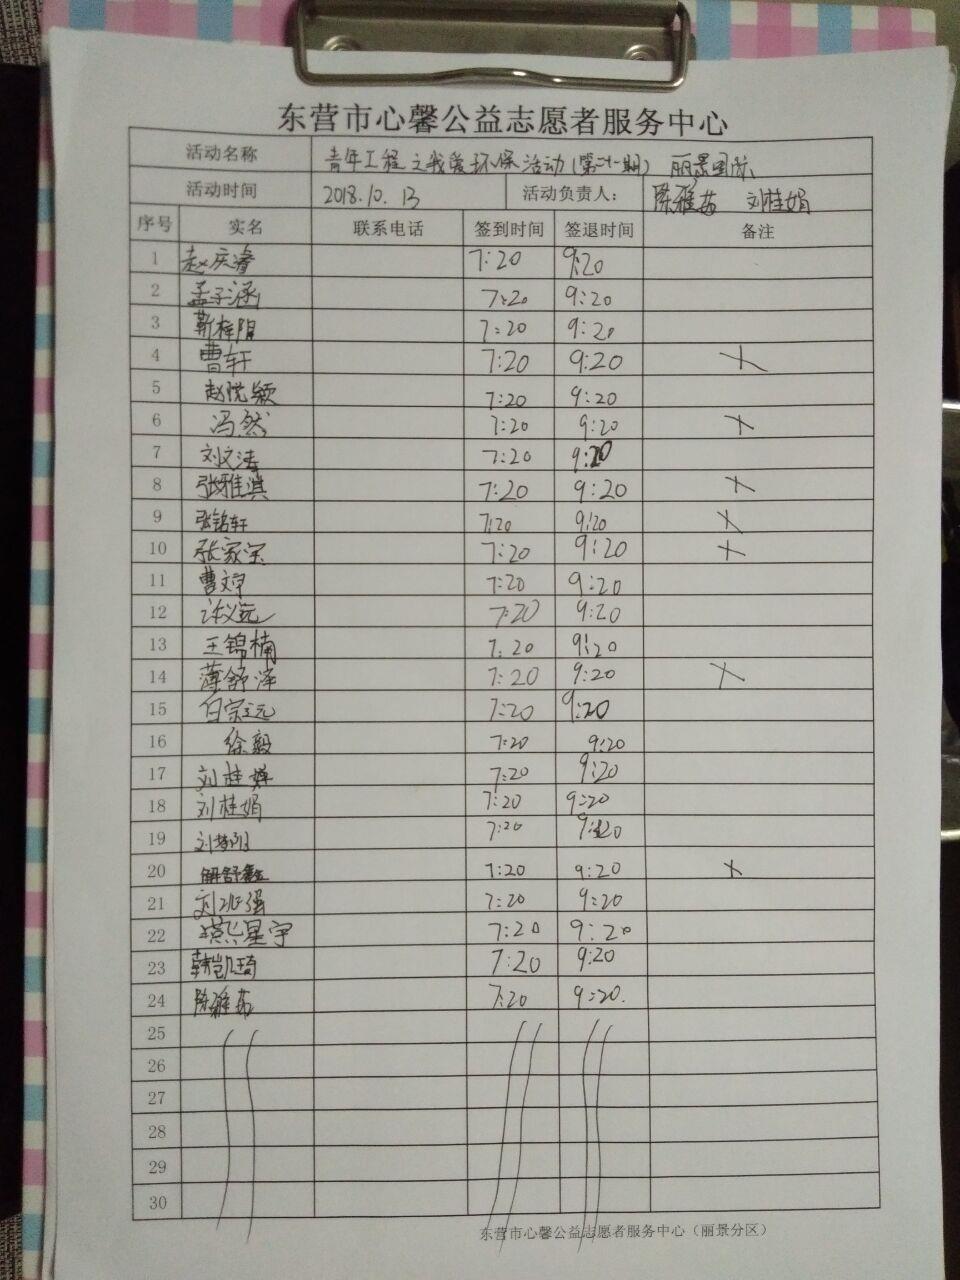 东营市心馨公益志愿者服务中心
活动名称 青年工程之我爱环保活动(第二十一期) 丽景国际
活动时间 2018.10.13 活动负责人: 陈雅茹 刘桂娟
序号 实名 联系电话 签到时间 签退时间 备注
1 赵庆睿 7:20 9:20
2 孟子涵 7:20 9:20
3 靳梓阳 7:20 9:20
4 曹轩 7:20 9:20 ×
5 赵悦颖 7:20 9:20
6 冯然 7:20 9:20 ×
7 刘文涛 7:20 9:20
8 张雅淇 7:20 9:20 ×
9 张铭轩 7:20 9:20 ×
10 张家宝 7:20 9:20 ×
11 曹文 7:20 9:20
12 远 7:20 9:20
13 王锦楠 7:20 9:20
14 薄舒泽 7:20 9:20 ×
15 白宗远 7:20 9:20
16 徐毅 7:20 9:20
17 刘桂 7:20 9:20
18 刘桂娟 7:20 9:20
19 刘 7:20 9:20
20 解舒鑫 7:20 9:20 ×
21 刘 强 7:20 9:20
22 星宇 7:20 9:20
23 韩凯琦 7:20 9:20
24 陈雅茹 7:20 9:20.
25
26
27
28
29
30
东营市心馨公益志愿者服务中心（丽景分区）